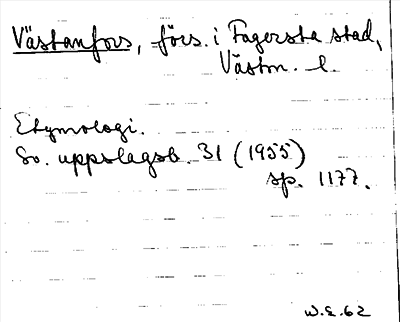 Västanfors, förs. i Fagersta stad,
Västm. l.
Etymologi.
Sv. uppslagsb. 31 (1955)
sp. 1177.
W.E. 62